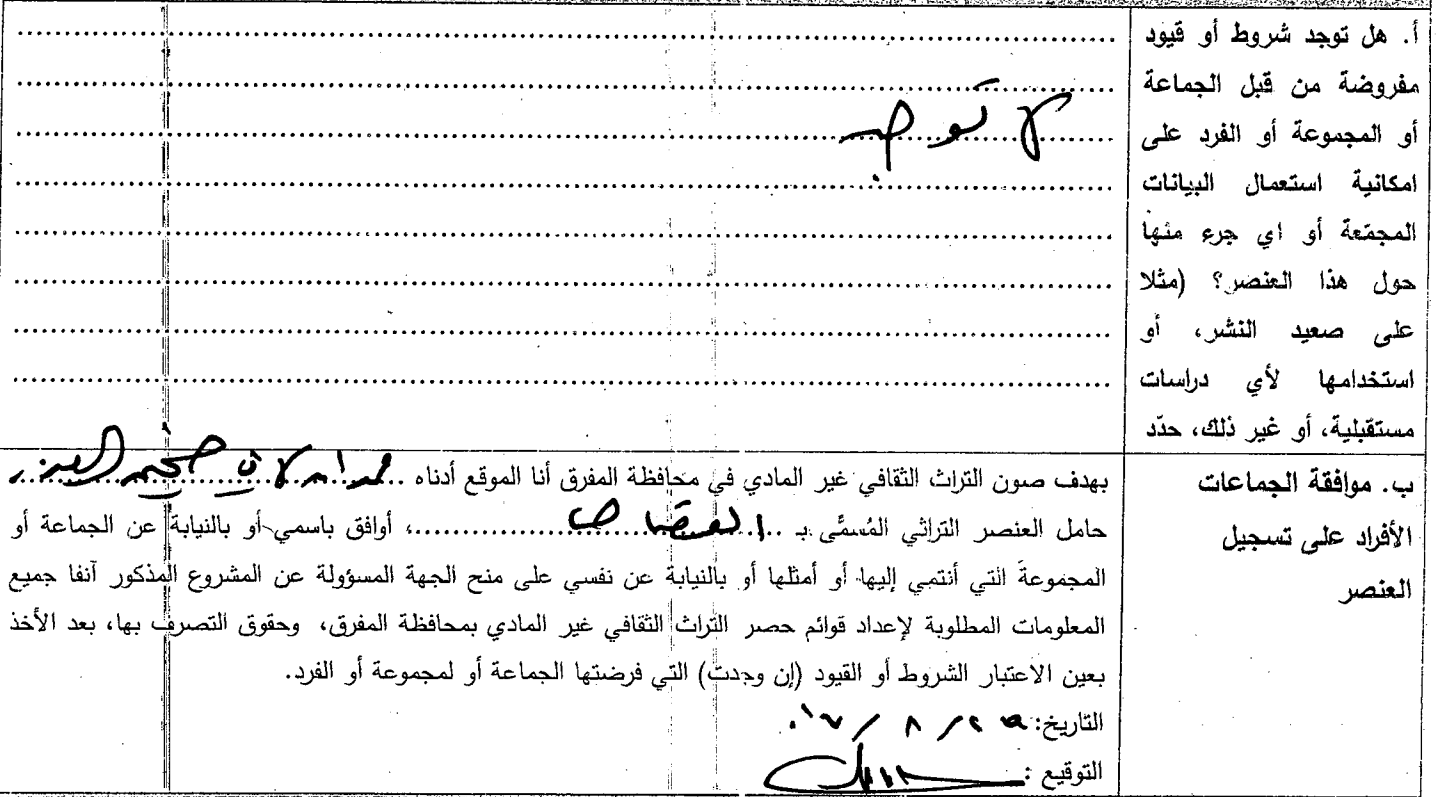 أ. هل توجد شروط أو قيود
مفروضة من قبل الجماعة
أو المجموعة أو الفرد على
امكانية استعمال البيانات
المجمّعة أو اي جرء منها
حول هذا العنصر؟ (مثلا
على صعيد النشر، أو
استخدامها لأي دراسات
مستقبلية، أو غير ذلك، حدّد
لا توجد
ب. موافقة الجماعات
الأفراد على تسجيل
العنصر
بهدف صون التراث الثقافي غير المادي في محافظة المفرق أنا الموقع أدناه
حامل العنصر التراثي المُسمَّى بـ ..............، أوافق باسمي أو بالنيابة عن الجماعة أو
المجموعة التي أنتمي إليها أو أمثلها أو بالنيابة عن نفسي على منح الجهة المسؤولة عن المشروع المذكور آنفا جميع
المعلومات المطلوبة لإعداد قوائم حصر التراث الثقافي غير المادي بمحافظة المفرق، وحقوق التصرف بها، بعد الأخذ
بعين الاعتبار الشروط أو القيود (إن وجدت) التي فرضتها الجماعة أو لمجموعة أو الفرد.
التاريخ:
التوقيع :